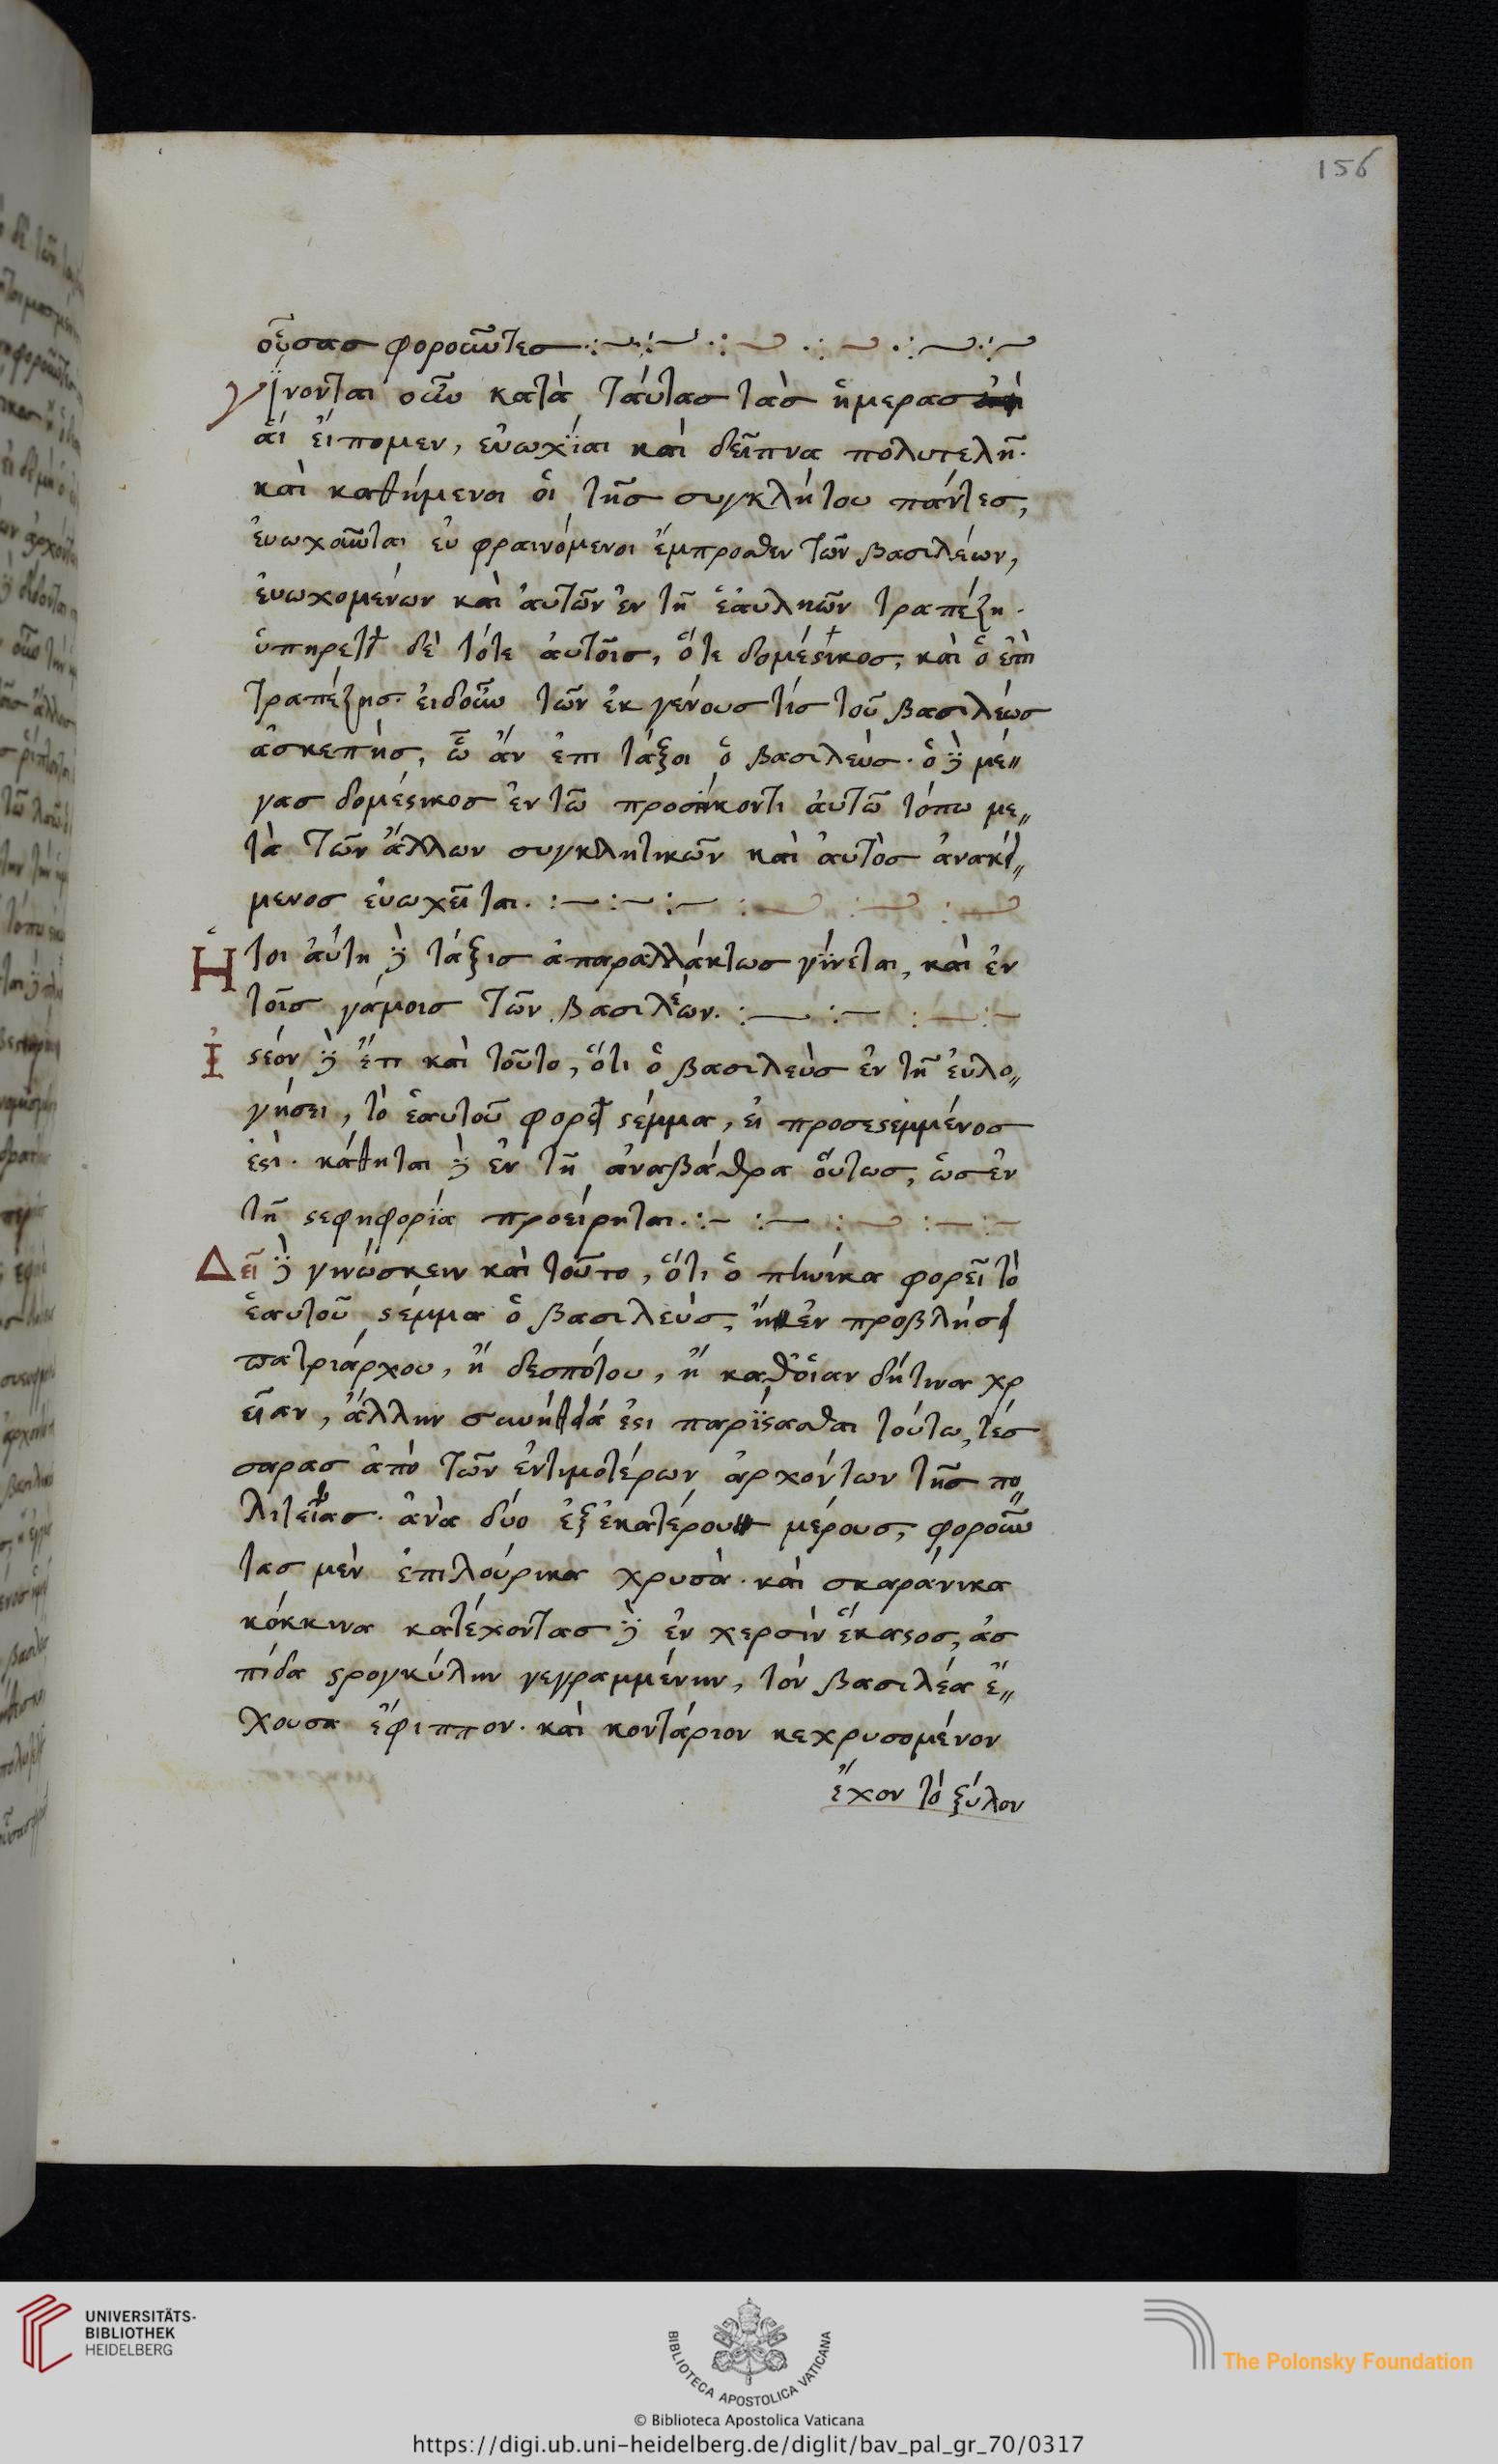 156
οὔσας φοροῦντες
γίνονται οὖν κατὰ ταύτας τὰς ἡμέρας
ἃι εἴπομεν, εὐωχΐαι καὶ δεῖπνα πολυτελῆ.
καὶ καθήμενοι ὁι τῆς συγκλήτου πάντες,
ἐυωχοῦνται ἐυ φραινόμενοι ἔμπροσθεν τῶν βασιλέων,
ἐυωχομένων καὶ ἀυτῶν ἐν τῆ ἑαυλιῶν τραπέζη.
ὑπηρετεῖ δὲ τότε ἀυτοῖς, ὅτε δομέστικος, καὶ ὁ ἐπὶ
τραπέζης. ἐιδοῦν τῶν ἐκ γένους τίς τοῦ βασιλέως
ἀσκεπὴς, ὧ ἂν ἐπι τάξοι ὁ βασιλεύς. ὁ δὲ μέ〃
γας δομέστικος ἐν τῶ προσήκοντι ἀυτῶ τόπω με〃
τὰ τῶν ἄλλων συγκλητικῶν καὶ ἀυτὸς ἀνακεί〃
μενος ἐυωχεῖται.
Ἡτοι ἀύτη δὲ τάξις ἀπαραλλάκτως γίνεται, καὶ ἐν
τοῖς γάμοις τῶν βασιλέων.
Ἰστέον δὲ ἔτι καὶ τοῦτο, ὅτι ὁ βασιλεὺς ἐν τῆ ἐυλο〃
γήσει, τὸ ἑαυτοῦ φορεῖ στέμμα, ἐι προσεστεμμένος
ἐστί. κάθηται δὲ ἐν τῆ ἀναβάθρα ὅυτως, ὡς ἐν
τῆ στεφηφορΐα προείρηται.
Δεῖ δὲ γινώσκειν καὶ τοῦτο, ὅτι ὁ πηνίκα φορεῖ τὸ
ἑαυτοῦ στέμμα ὁ βασιλεύς, ἢ ἐν προβλήσει
πατριάρχου, ἢ δεσπότου, ἢ καθ' ὅιαν δήτινα χρ
εῖαν, ἄλλην συνήθειά ἐστι παρΐστασθαι τούτω, τέσ
σαρας ἀπὸ τῶν ἐντιμοτέρων ἀρχόντων τῆς πο〃
λιτείας. ἀνὰ δύο ἐξ ἑκατέρου μέρους, φοροῦν
τας μὲν ἐπιλούρικα χρυσὰ. καὶ σκαράνικα
κόκκινα κατέχοντας δὲ ἐν χερσὶν ἕκαστος, ἀσ
πίδα στρογκύλην γεγραμμένην, τὸν βασιλέα ἔ〃
χουσα ἔφιππον. καὶ κοντάριον κεχρυσομένον
ἔχον τὸ ξύλον
UNIVERSITÄTS-
BIBLIOTHEK
HEIDELBERG
BIBLIOTECA APOSTOLICA VATICANA
The Polonsky Foundation
© Biblioteca Apostolica Vaticana
https://digi.ub.uni-heidelberg.de/diglit/bav_pal_gr_70/0317